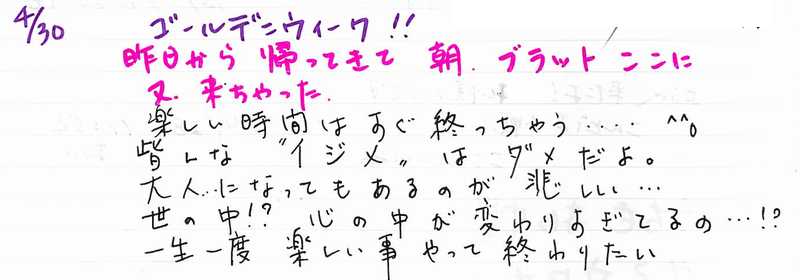 4/30 ゴールデンウィーク!!
昨日から 帰ってきて 朝. ブラット ここに
又. 来ちゃった.
楽しい時間は すぐ 終っちゃう‥‥ ^^。
皆んな "イジメ" は ダメだよ。
大人‥になっても あるのが 悲しい…
世の中!? 心の中が 変わりすぎてるの…!?
一生一度 楽しい事 やって 終わりたい